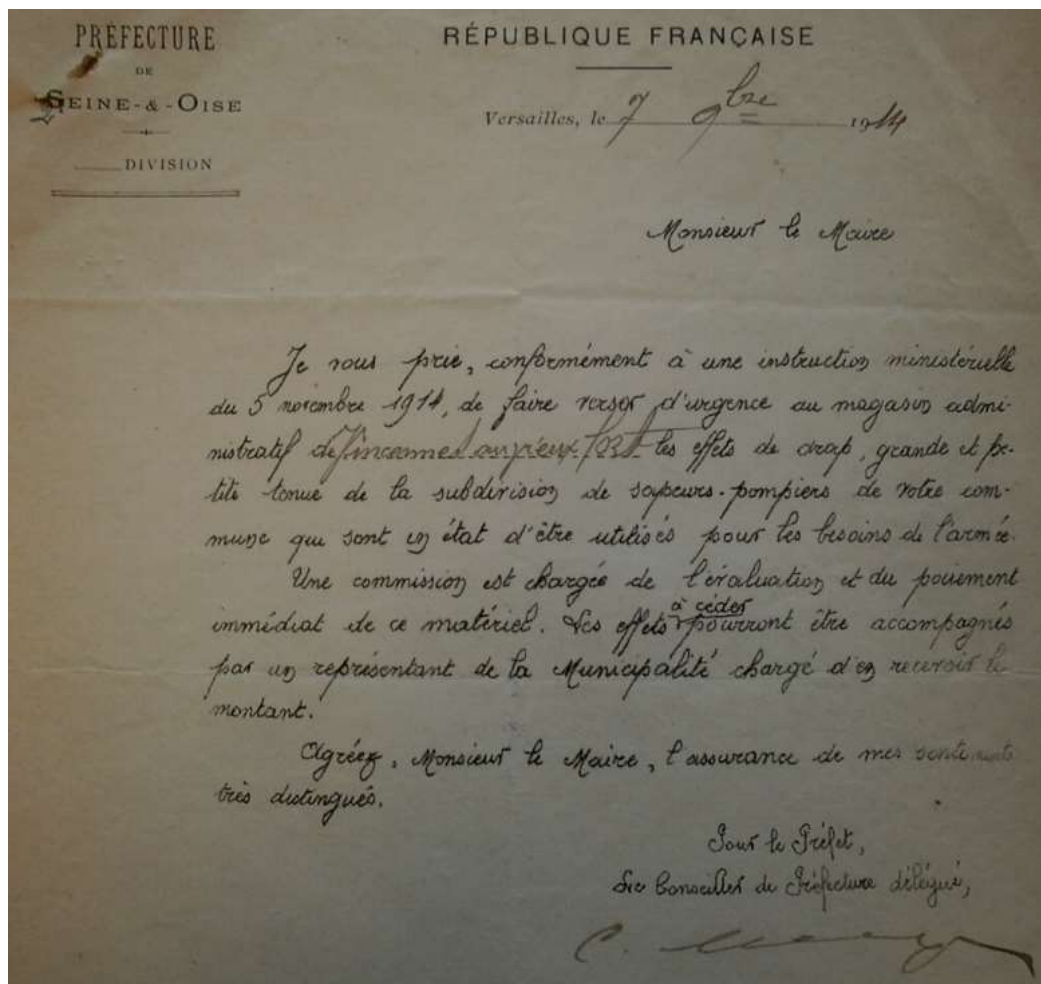 PRÉFECTURE
DE
SEINE-&-OISE
DIVISION
RÉPUBLIQUE FRANÇAISE
Versailles, le 7 9bre 1914
Monsieur le Maire
Je vous prie, conformément à une instruction ministérielle
du 5 novembre 1914, de faire verser d'urgence au magasin admi-
nistratif de Vincennes au vieux fort les effets de drap, grande et pe-
tite tenue de la subdivision de sapeurs-pompiers de votre com-
mune qui sont en état d'être utilisés pour les besoins de l'armée.
Une commission est chargée de l'évaluation et du paiement
immédiat de ce matériel. Les effets à céder pourront être accompagnés
par un représentant de la Municipalité chargé d'en recevoir le
montant.
Agréez, Monsieur le Maire, l'assurance de mes sentiments
très distingués.
Pour le Préfet,
Le Conseiller de Préfecture délégué,
C.